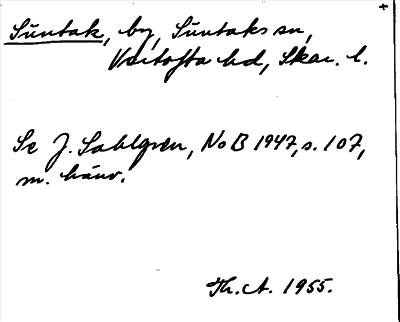 Suntak, by, Suntaks sn,
Vartofta hd, Skar. l.
Se J. Sahlgren, NoB 1947, s. 107,
m. hänv.
Th. A. 1955.